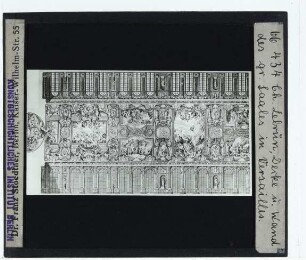 bb 434 Ch. Lebrun, Decke u. Wand
des gr. Saales in Versailles.
Dr. Franz Stoedtner, Berlin, Kaiser-Wilhelm-Str. 55
KUNSTGESCHICHTLICHES INSTITUT BERLIN